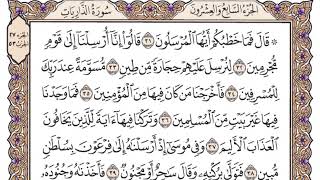 الجزء السابع والعشرون
سورة الذاريات
۞ قَالَ فَمَا خَطْبُكُمْ أَيُّهَا الْمُرْسَلُونَ ٣١ قَالُوا إِنَّا أُرْسِلْنَا إِلَىٰ قَوْمٍ
مُّجْرِمِينَ ٣٢ لِنُرْسِلَ عَلَيْهِمْ حِجَارَةً مِّن طِينٍ ٣٣ مُّسَوَّمَةً عِندَ رَبِّكَ
لِلْمُسْرِفِينَ ٣٤ فَأَخْرَجْنَا مَن كَانَ فِيهَا مِنَ الْمُؤْمِنِينَ ٣٥ فَمَا وَجَدْنَا
فِيهَا غَيْرَ بَيْتٍ مِّنَ الْمُسْلِمِينَ ٣٦ وَتَرَكْنَا فِيهَا آيَةً لِّلَّذِينَ يَخَافُونَ
الْعَذَابَ الْأَلِيمَ ٣٧ وَفِي مُوسَىٰ إِذْ أَرْسَلْنَاهُ إِلَىٰ فِرْعَوْنَ بِسُلْطَانٍ
مُّبِينٍ ٣٨ فَتَوَلَّىٰ بِرُكْنِهِ وَقَالَ سَاحِرٌ أَوْ مَجْنُونٌ ٣٩ فَأَخَذْنَاهُ وَجُنُودَهُ